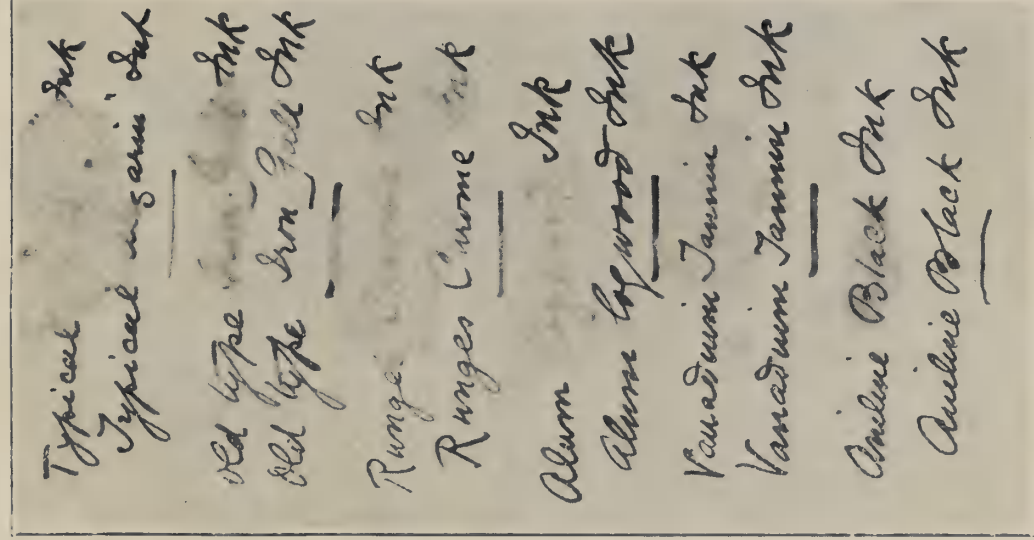 Typical " Ink
Typical garin" Ink
Old type Ink
Old type Iron Gall Ink
Runge Ink
Runges Crome Ink
Alum Ink
Alum Logwood Ink
Vanadium Tannin Ink
Vanadium Tannin Ink
Aniline Black Ink
Aniline Black Ink